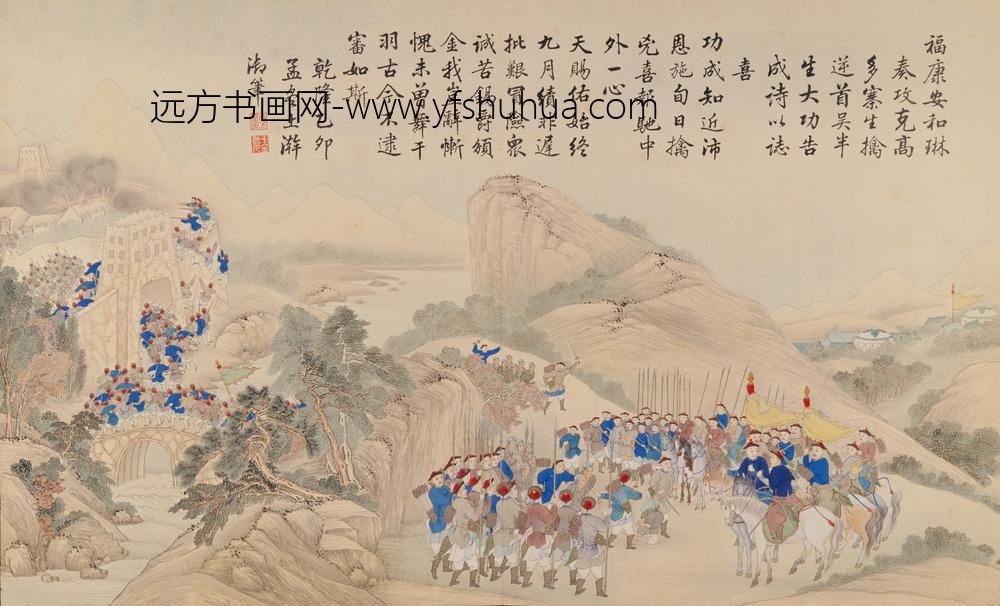 福康安和琳
奏攻克髙
多寨生擒
逆首吴半
生大功告
成詩以誌
喜
功成知近沛
恩施旬日擒
兇喜報馳中
外一心
天賜佑始終
九月績非遲
批艱冒險衆
誠苦錫爵頒
金我豈辭慚
愧未曾舞干
羽古今不逮
審如斯
乾隆乙卯
孟冬上澣
御筆
远方书画网-www.yfshuhua.com